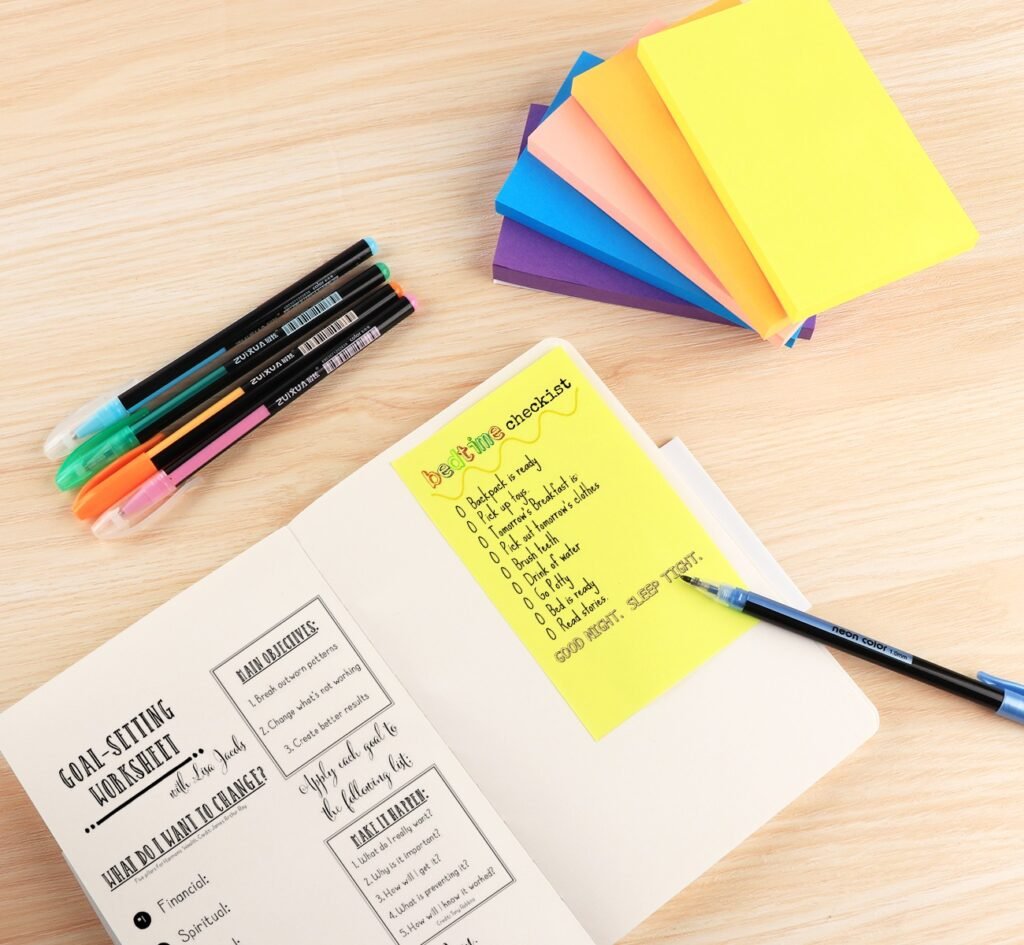 ZUIXUA
ZUIXUA
ZUIXUA
bedtime checkist
Backpack is ready
Pick up toys
Tomorrow's Breakfast is:
Pick out tomorrow's clothes
Brush teeth
Drink of water
Go Potty
Bed is ready
Read stories.
GOOD NIGHT. SLEEP TIGHT.
neon color 1.0mm
GOAL-SETTING
WORKSHEET
with Lisa Jacobs
WHAT DO I WANT TO CHANGE?
#1 Financial:
Spiritual:
MAIN OBJECTIVES:
1. Break outworn patterns
2. Change what's not working
3. Create better results
Apply each goal to
the following list:
MAKE IT HAPPEN:
1. What do I really want?
2. Why is it important?
3. How will I get it?
4. What is preventing it?
5. How will I know it worked?
Credit: Tony Robbins